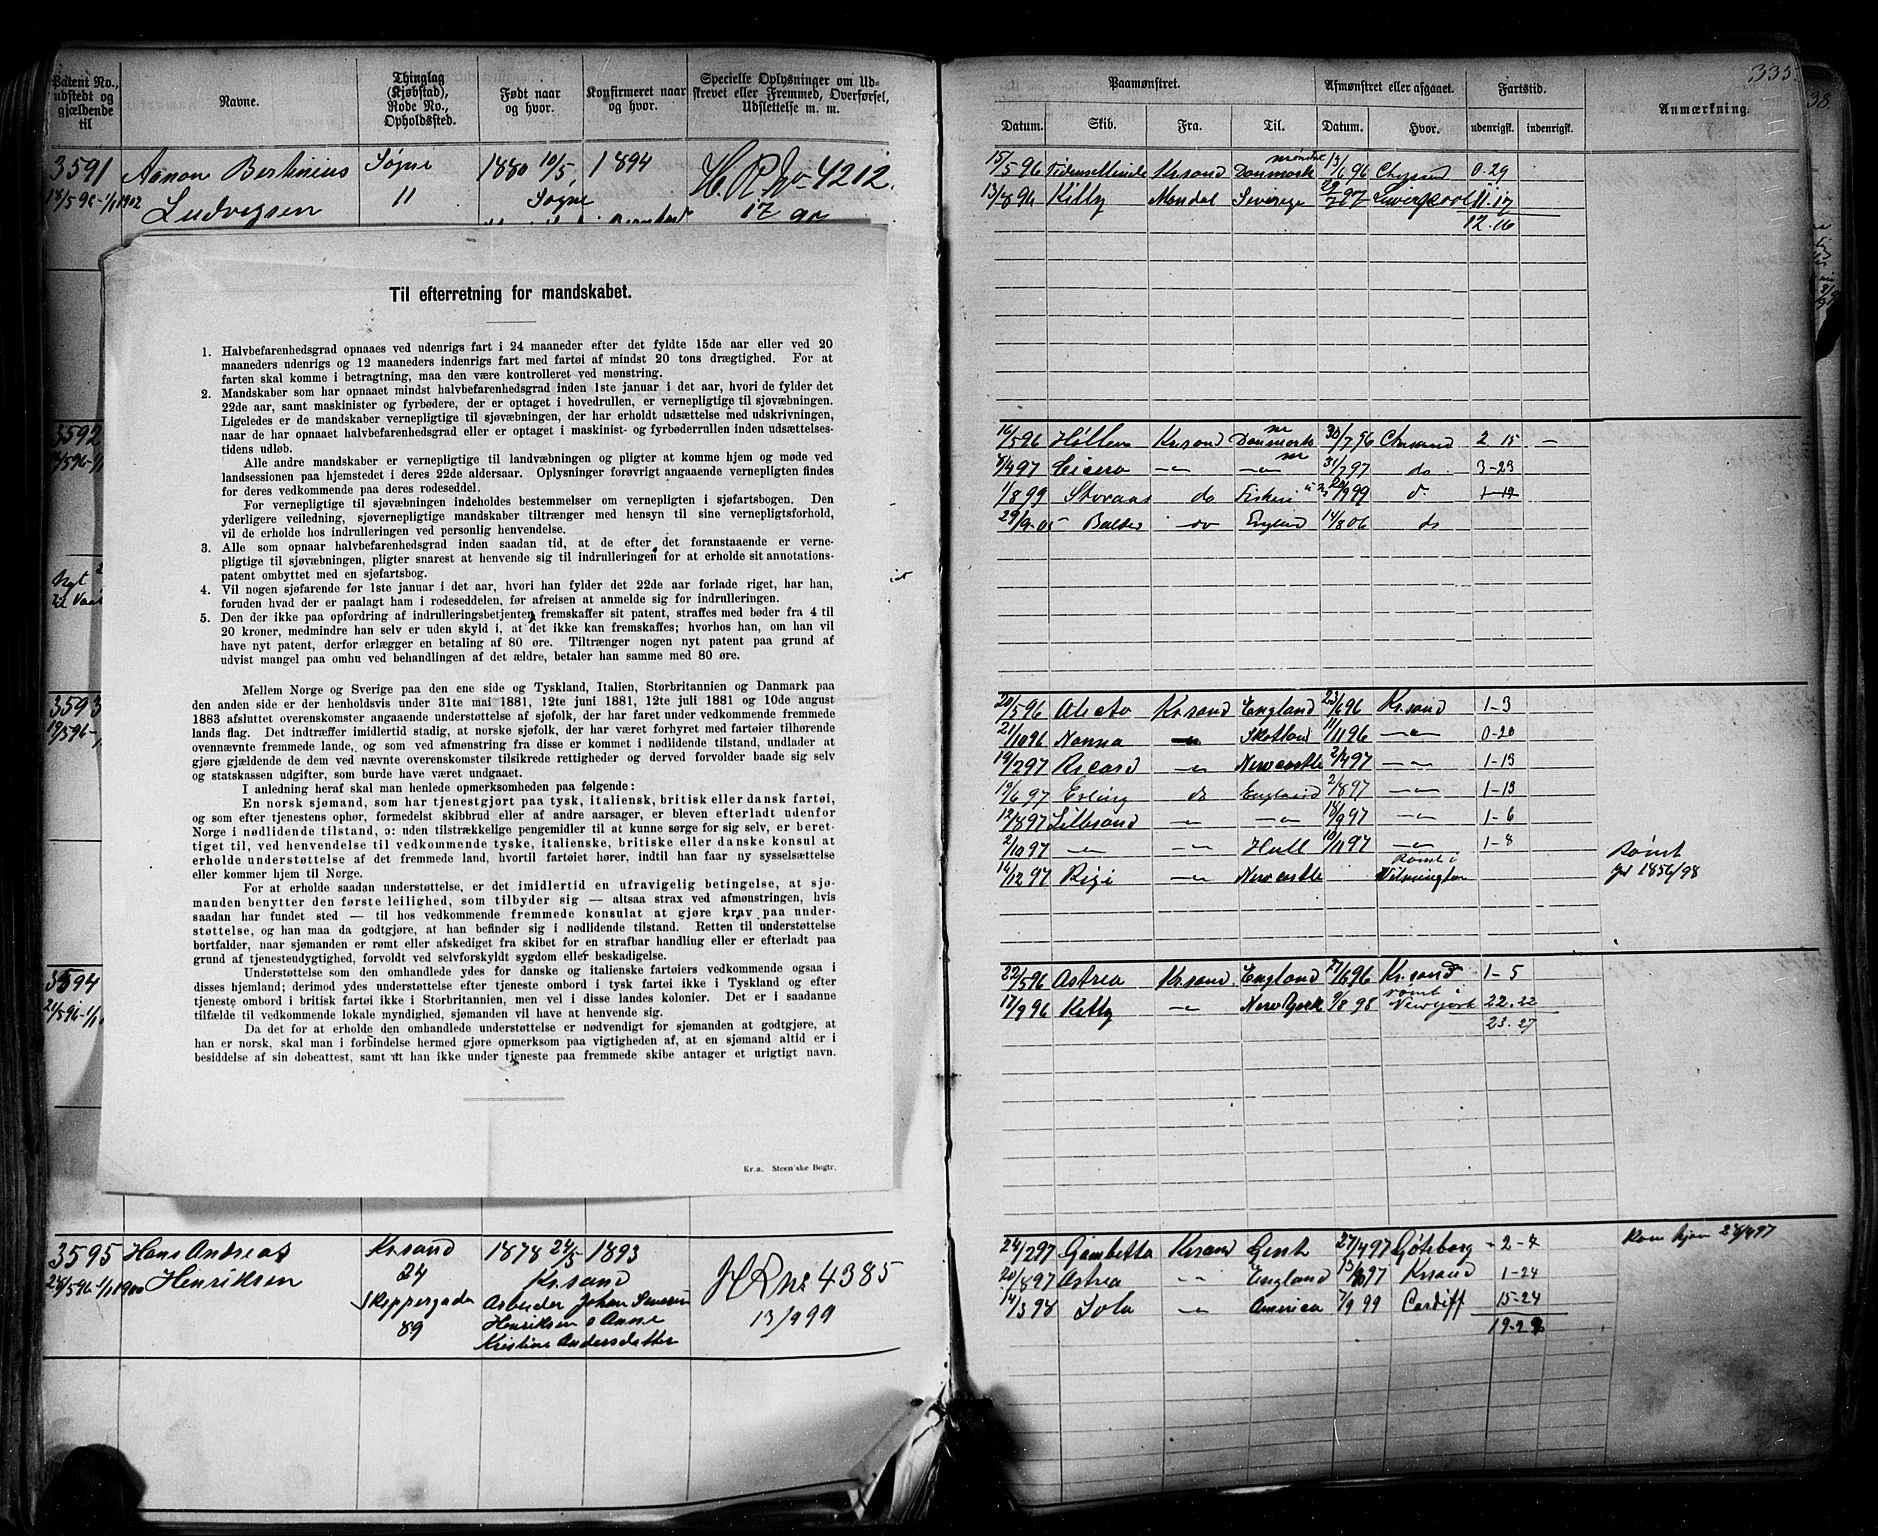 335.
38.
Patent No., udstedt og gjældende til
Navne.
Thinglag (Kjøbstad), Rode No., Opholdssted.
Født naar og hvor.
Konfirmeret naar og hvor.
Specielle Oplysninger om Udskrevet eller Fremmed, Overførsel, Udslettelse m. m.
3591 Aanon Bertinius Søgne 1880 10/5 1894 H.R. No 4212.
Ludvigsen 11 Søgne
Til efterretning for mandskabet.
1. Halvbefarenhedsgrad opnaaes ved udenrigs fart i 24 maaneder efter det fyldte 15de aar eller ved 20
maaneders udenrigs og 12 maaneders indenrigs fart med fartøi af mindst 20 tons drægtighed. For at
farten skal komme i betragtning, maa den være kontrolleret ved mønstring.
2. Mandskaber som har opnaaet mindst halvbefarenhedsgrad inden 1ste januar i det aar, hvori de fylder det
22de aar, samt maskinister og fyrbødere, der er optaget i hovedrullen, er vernepligtige til sjøvæbningen.
Ligeledes er de mandskaber vernepligtige til sjøvæbningen, der har erholdt udsættelse med udskrivningen,
naar de har opnaaet halvbefarenhedsgrad eller er optaget i maskinist- og fyrbøderrullen inden udsættelses-
tidens udløb.
Alle andre mandskaber er vernepligtige til landvæbningen og pligter at komme hjem og møde ved
landsessionen paa hjemstedet i deres 22de aldersaar. Oplysninger forøvrigt angaaende vernepligten findes
for deres vedkommende paa deres rodeseddel.
For vernepligtige til sjøvæbningen indeholdes bestemmelser om vernepligten i sjøfartsbogen. Den
yderligere veiledning, sjøvernepligtige mandskaber tiltrænger med hensyn til sine vernepligtsforhold,
vil de erholde hos indrulleringen ved personlig henvendelse.
3. Alle som opnaar halvbefarenhedsgrad inden saadan tid, at de efter det foranstaaende er verne-
pligtige til sjøvæbningen, pligter snarest at henvende sig til indrulleringen for at erholde sit annotations-
patent ombyttet med en sjøfartsbog.
4. Vil nogen sjøfarende før 1ste januar i det aar, hvori han fylder det 22de aar forlade riget, har han,
foruden hvad der er paalagt ham i rodeseddelen, før afreisen at anmelde sig for indrulleringen.
5. Den der ikke paa opfordring af indrulleringsbetjenten fremskaffer sit patent, straffes med bøder fra 4 til
20 kroner, medmindre han selv er uden skyld i, at det ikke kan fremskaffes; hvorhos han, om han vil
have nyt patent, derfor erlægger en betaling af 80 øre. Tiltrænger nogen nyt patent paa grund af
udvist mangel paa omhu ved behandlingen af det ældre, betaler han samme med 80 øre.
Mellem Norge og Sverige paa den ene side og Tyskland, Italien, Storbritannien og Danmark paa
den anden side er der henholdsvis under 31te mai 1881, 12te juni 1881, 12te juli 1881 og 10de august
1883 afsluttet overenskomster angaaende understøttelse af sjøfolk, der har faret under vedkommende fremmede
lands flag. Det indtræffer imidlertid stadig, at norske sjøfolk, der har været forhyret med fartøier tilhørende
ovennævnte fremmede lande, og som ved afmønstring fra disse er kommet i nødlidende tilstand, undlader at
gjøre gjældende de dem ved nævnte overenskomster tilsikrede rettigheder og derved forvolder baade sig selv
og statskassen udgifter, som burde have været undgaaet.
I anledning heraf skal man henlede opmerksomheden paa følgende:
En norsk sjømand, som har tjenestgjort paa tysk, italiensk, britisk eller dansk fartøi,
og som efter tjenestens ophør, formedelst skibbrud eller af andre aarsager, er bleven efterladt udenfor
Norge i nødlidende tilstand, ɔ: uden tilstrækkelige pengemidler til at kunne sørge for sig selv, er beret-
tiget til, ved henvendelse til vedkommende tyske, italienske, britiske eller danske konsul at
erholde understøttelse af det fremmede land, hvortil fartøiet hører, indtil han faar ny sysselsættelse
eller kommer hjem til Norge.
For at erholde saadan understøttelse, er det imidlertid en ufravigelig betingelse, at sjø-
manden benytter den første leilighed, som tilbyder sig — altsaa strax ved afmønstringen, hvis
saadan har fundet sted — til hos vedkommende fremmede konsulat at gjøre krav paa under-
støttelse, og han maa da godtgjøre, at han befinder sig i nødlidende tilstand. Retten til understøttelse
bortfalder, naar sjømanden er rømt eller afskediget fra skibet for en strafbar handling eller er efterladt paa
grund af tjenestendygtighed, forvoldt ved selvforskyldt sygdom eller beskadigelse.
Understøttelse som den omhandlede ydes for danske og italienske fartøiers vedkommende ogsaa i
disses hjemland; derimod ydes understøttelse efter tjeneste ombord i tysk fartøi ikke i Tyskland og efter
tjeneste ombord i britisk fartøi ikke i Storbritannien, men vel i disse landes kolonier. Det er i saadanne
tilfælde til vedkommende lokale myndighed, sjømanden vil have at henvende sig.
Da det for at erholde den omhandlede understøttelse er nødvendigt for sjømanden at godtgjøre, at
han er norsk, skal man i forbindelse hermed gjøre opmerksom paa vigtigheden af, at en sjømand altid er i
besiddelse af sin døbeattest, samt at han ikke under tjeneste paa fremmede skibe antager et urigtigt navn.
Kr.a. Steen'ske Bogtr.
3592
3593
3594
3595 Hans Andreas Krsand 1878 24/5 1893
Henriksen 24 Kr.sand HR no 4385
Skippergada Arbeider Johan
89 Henriksen o Anne 13/9 99
Kristine Andersdatter
Paamønstret.
Afmønstret eller afgaaet.
Fartstid.
Anmærkning.
Datum. Skib. Fra. Til. Datum. Hvor. udenrigsk. indenrigsk.
15/5 96 Kr.sand Danmark 13/6 96 0-29
13/8 96 Kitty Mandal Sverige Liverpool 11.17
12.16
16/5 96 Kr.sand Danmark 30/7 96 Chrsand 2 15 —
8/4 97 Cicero —"— —"— 31/7 97 do 3-23
1/8 99 Storaas do Fiskeri 1-19
29/9 05 Balder do England 14/8 06 do
20/5 96 Alecto Kr.sand England 23/6 96 Kr.sand 1-3
21/10 96 Nanna —"— Skotland 11/11 96 —"— 0-20
19/2 97 Ricard —"— Newcastle 2/4 97 —"— 1-13
19/6 97 Erling do England 2/8 97 —"— 1-13
12/8 97 Lillesand —"— —"— 18/9 97 —"— 1-6
2/10 97 —"— —"— Hull 10/11 97 —"— 1-8
14/12 97 Rigi —"— Newcastle Rømt i Wilmington
Rømt
jnl 1856/98
22/5 96 Astrea Kr.sand England 27/6 96 Kr.sand 1-5
17/9 96 Kitty —"— New York 9/8 98 rømt i Newyork 22.22
23.27
24/2 97 Gambetta Krsand Gent 27/4 97 Gøteborg 2-4
Kom hjem 28/4 97
20/8 97 Astrea —"— England Krsand 1-24
14/3 98 Sola —"— America 7/9 99 Cardiff 15-24